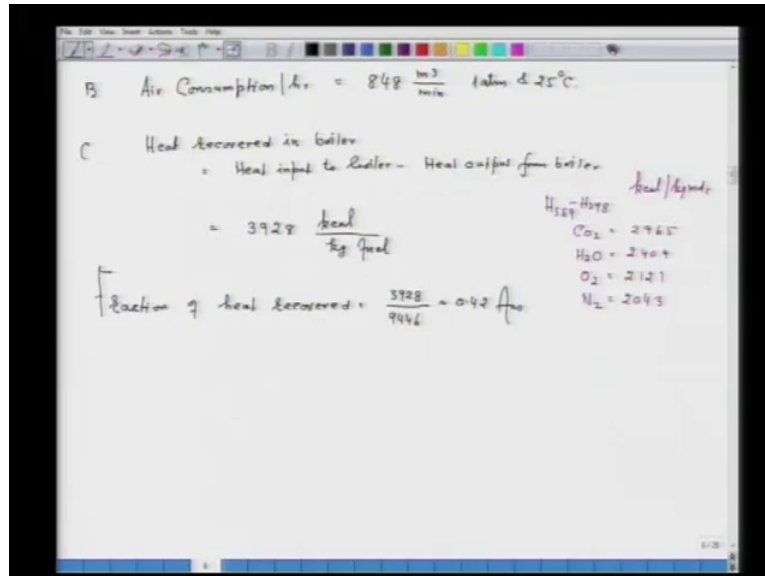 File Edit View Insert Actions Tools Help
B Air Consumption/hr = 848 m3/min 1atm & 25°C.
C Heat recovered in boiler
= Heat input to boiler - Heat output from boiler
= 3928 kcal/kg fuel
kcal/kgmole
H559-H298
CO2 = 2965
H2O = 2404
O2 = 2121
N2 = 2043
Fraction of heat recovered = 3928/9446 = 0.42 Ans